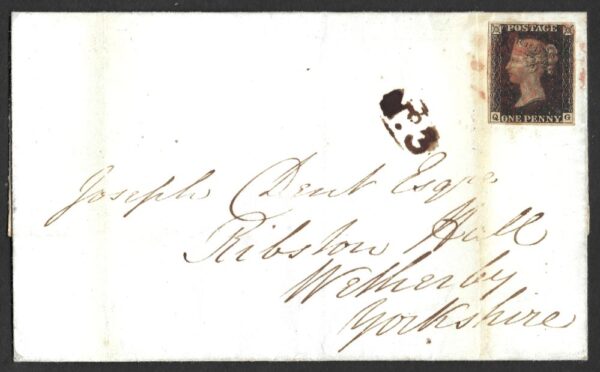 POSTAGE
ONE PENNY
Q G
Joseph Dent Esqre
Ribston Hall
Wetherby
Yorkshire